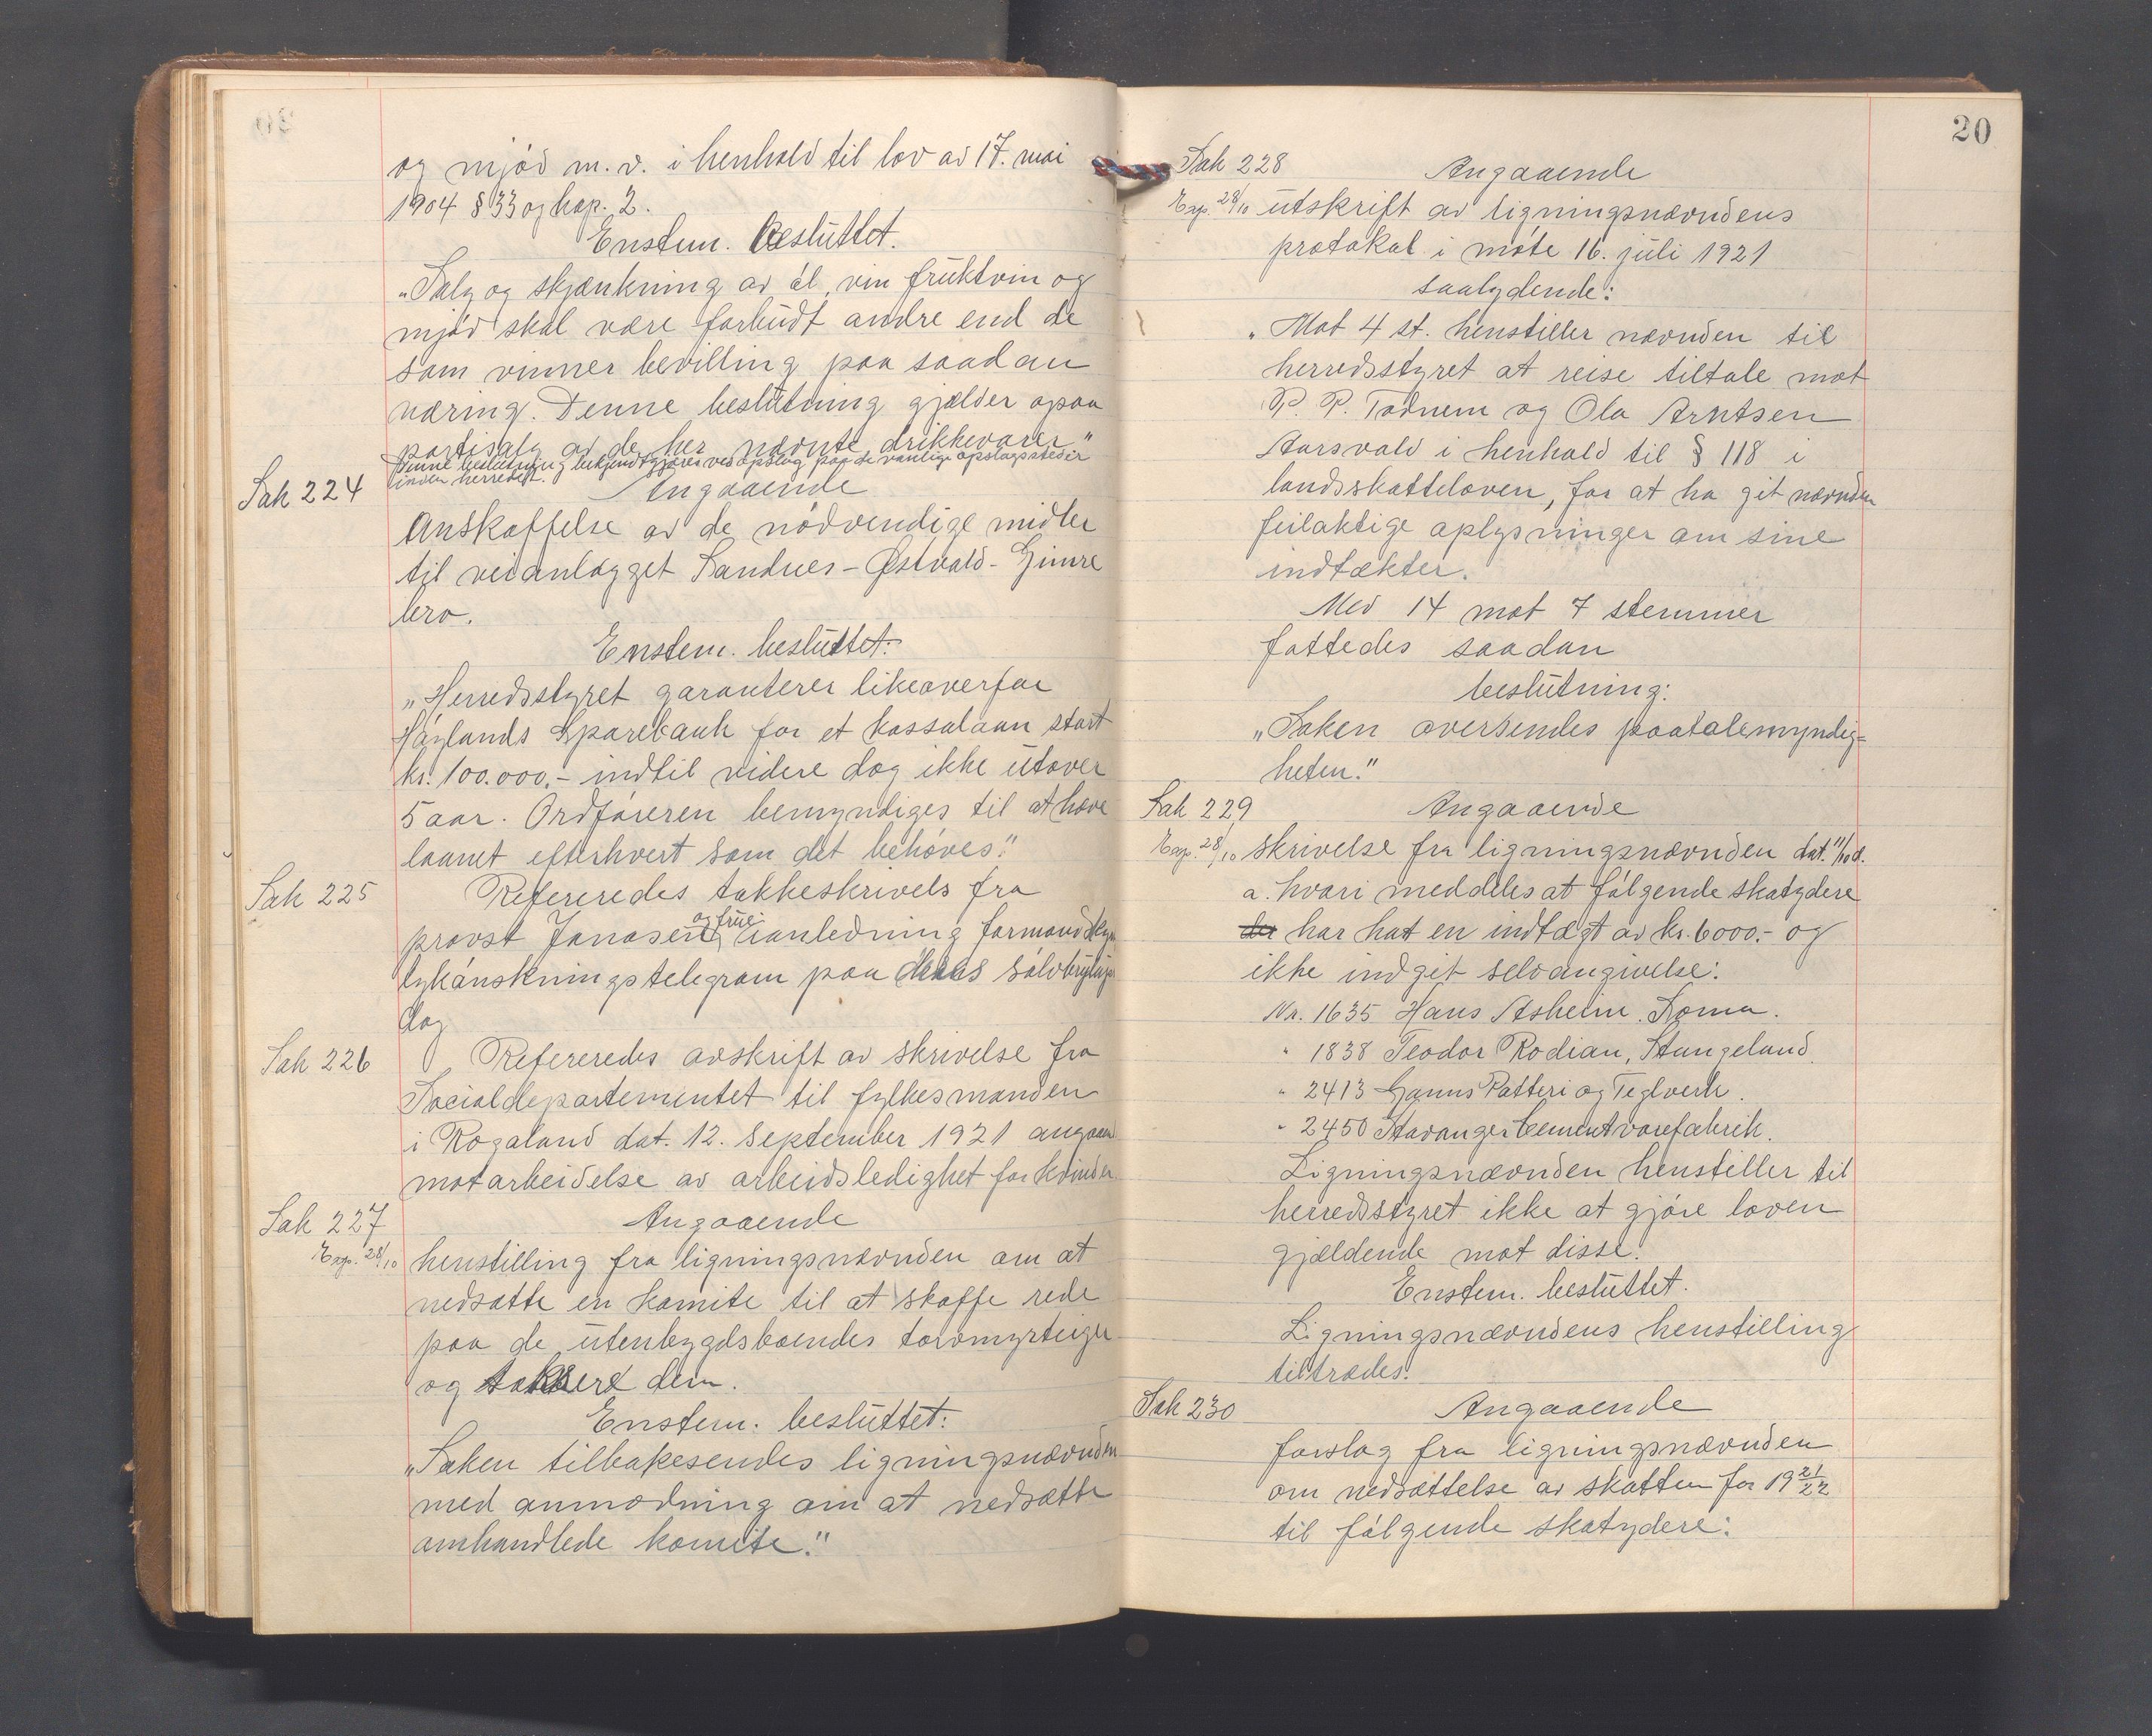 og mjød m. v. i henhold til lov av 17. mai
1904 § 33 og kap. 2.
Enstem. besluttet.
„Salg og skjænkning av øl, vin fruktvin og
mjød skal være forbudt andre end de
som vinner bevilling paa saadan
næring. Denne beslutning gjælder ogsaa
partisalg av de her nævnte drikkevarer"
Denne beslutning bekjendtgjøres ved opslag paa de vanlige opslagssteder
inden herredet.
Sak 224
Angaaende
Anskaffelse av de nødvendige midler
til veianlægget Sandnes - Østvold - Gimre
bro.
Enstem. besluttet:
„Herredsstyret garanterer likeoverfor
Høylands Sparebank for et kassalaan stort
kr. 100.000.- indtil videre dog ikke utover
5 aar. Ordføreren bemyndiges til at hæve
laanet efterhvert som det behøves."
Sak 225
Refereredes takkeskrivels fra
provst Jonasen og frue i anledning formandskap
lykønskningstelegram paa deres sølvbryllups
dag
Sak 226
Refereredes avskrift av skrivelse fra
Socialdepartementet til fylkesmanden
i Rogaland dat. 12. september 1921 angaaend
motarbeidelse av arbeidsledighet for kvinder
Sak 227
Angaaende
Exp. 28/10
henstilling fra ligningsnævnden om at
nedsætte en komite til at skaffe rede
paa de utenbygdsboendes torvmyrteiger
og taksere dem.
Enstem. besluttet:
„Saken tilbakesendes ligningsnævnden
med anmodning om at nedsætte
omhandlede komite."
20
Sak 228
Angaaende
Exp. 28/10
utskrift av ligningsnævndens
protokol i møte 16. juli 1921
saalydende:
„Mot 4 st. henstiller nævnden til
herredsstyret at reise tiltale mot
P. P. Todnem og Ola Arntsen
Aarsvold i henhold til § 118 i
landsskatteloven, for at ha git nævnden
feilaktige oplysninger om sine
indtækter.
Med 14 mot 7 stemmer
fattedes saadan
beslutning:
„Saken oversendes paatalemyndig=
heten."
Sak 229
Angaaende
Exp. 28/10
skrivelse fra ligningsnævnden dat. 11/10 d.
a. hvori meddeles at følgende skatydere
der har hat en indtægt av kr. 6000.- og
ikke indgit selvangivelse:
Nr. 1635 Hans Asheim. Soma.
" 1838 Teodor Rodian, Stangeland.
" 2413 Ganns Potteri og Teglverk.
" 2450 Stavanger Cementvarefabrik.
Ligningsnævnden henstiller til
herredsstyret ikke at gjøre loven
gjældende mot disse.
Enstem. besluttet.
Ligningsnævndens henstilling
tiltrædes.
Sak 230
Angaaende
forslag fra ligningsnævnden
om nedsættelse av skatten for 19 21/22
til følgende skatydere: